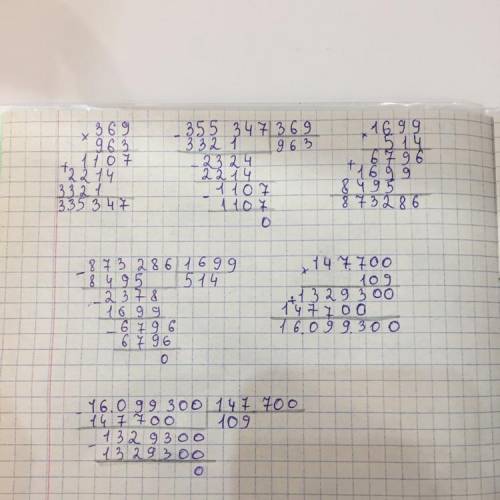 × 369
963
+ 1107
2214
3321
335347
- 355 347 | 369
3321 963
- 2324
2214
- 1107
1107
0
× 1699
514
+ 6796
1699
8495
873286
- 873 286 | 1699
8495 514
- 2378
1699
- 6796
6796
0
× 147.700
109
+ 1329300
147700
16.099.300
- 16.099300 | 147 700
147700 109
- 1329300
1329300
0